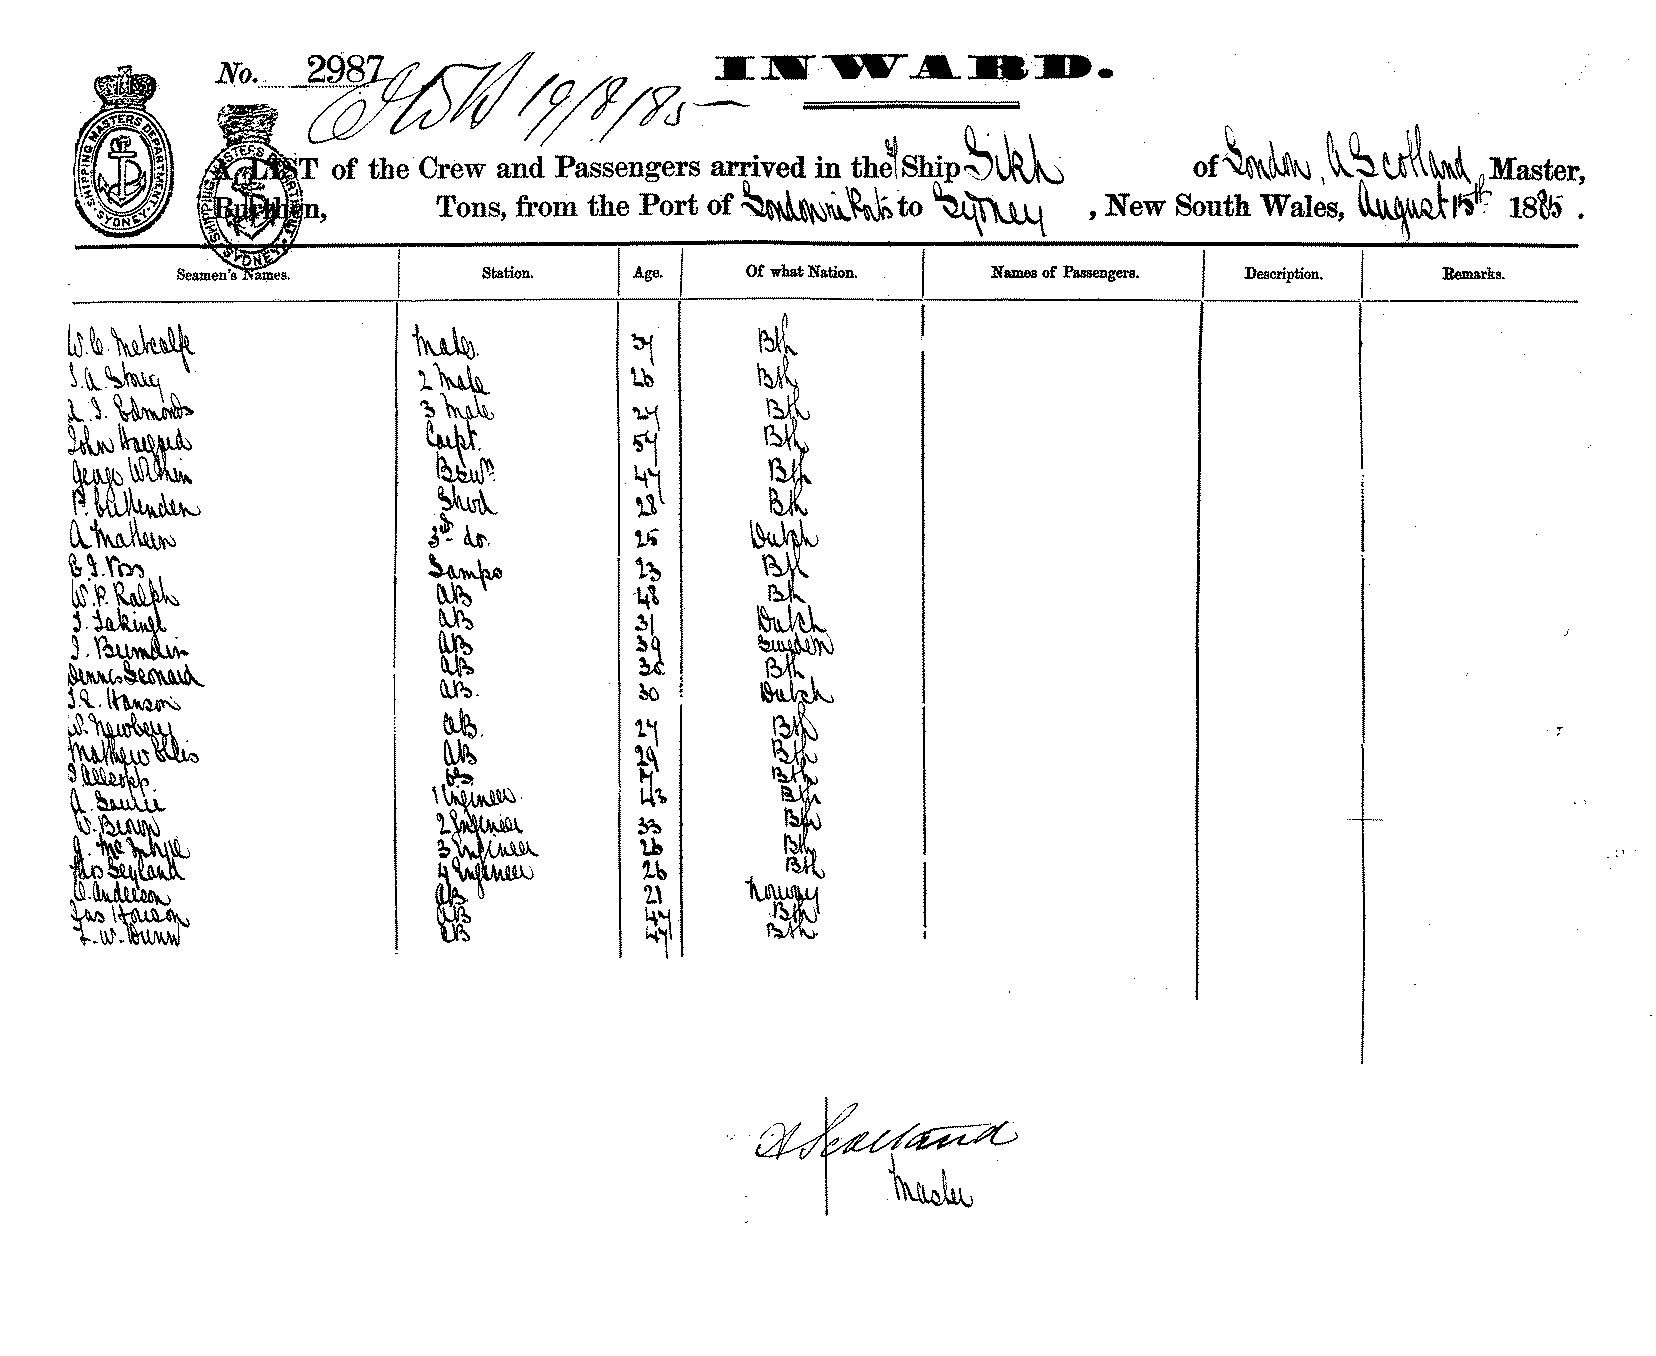 No. 2987 INWARD.
19/8/85
SHIPPING MASTERS DEPARTMENT SYDNEY
SHIPPING MASTERS DEPARTMENT SYDNEY
A LIST of the Crew and Passengers arrived in the Ship Sikh of London, A Scotland, Master,
Burthen, Tons, from the Port of London via Ports to Sydney, New South Wales, August 15th 1885.
Seamen's Names. Station. Age. Of what Nation. Names of Passengers. Description. Remarks.
W. C. Metcalfe Mate. Bth
2 Mate 26 Bth
Edmonds 3 Mate 24 Bth
John Haggard Carpt. 54 Bth
George Bswn 47 Bth
P. Cruttenden Stwd 28 Bth
A 3rd do. 25 Dutch
Voss Lamps 23 Bth
W. P. Ralph AB 48 Bth
AB 31 Dutch
AB 39 Sweden
Dennis Leonard AB Bth
Hanson AB. 30 Dutch
W. Newbery AB. 27 Bth
Mathew Ellis AB 29 Bth
Allsopp Bth
A. 1 Engineer 43 Bth
Brown 2 Engineer 33 Bth
McIntyre 3 Engineer 26 Bth
Thos Leyland 4 Engineer 26 Bth
Anderson AB 21 Norway
Jas AB 47 Bth
W. Dunn AB 47 Bth
A Scotland
Master